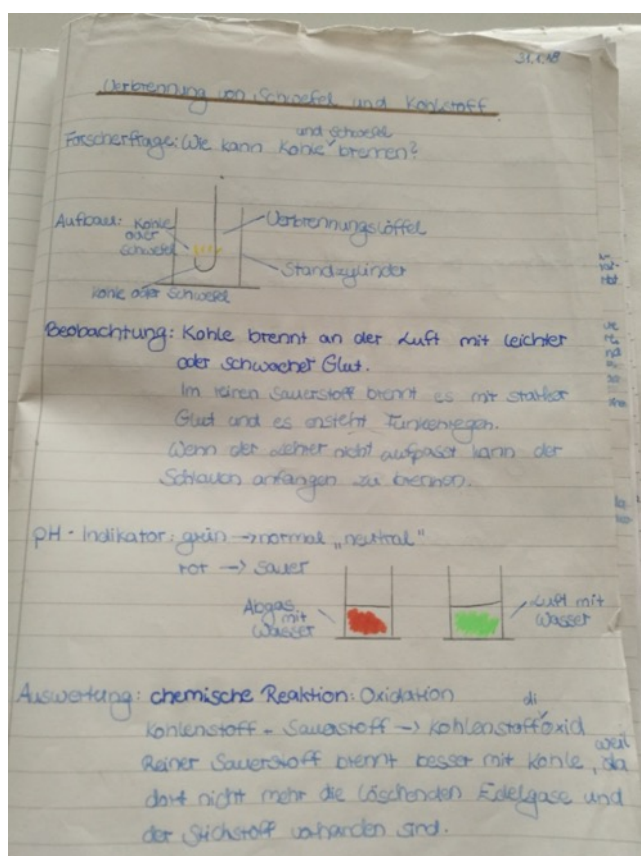 31.1.18
Verbrennung von Schwefel und Kohlstoff
und schwefel
Forscherfrage: Wie kann Kohle brennen?
Aufbau: Kohle
oder
schwefel
Verbrennungslöffel
Standzylinder
Kohle oder Schwefel
Beobachtung: Kohle brennt an der Luft mit leichter
oder schwacher Glut.
Im reinen Sauerstoff brennt es mit starker
Glut und es ensteht Funkenregen.
Wenn der Lehrer nicht aufpasst kann der
Schlauch anfangen zu brennen.
pH-Indikator: grün → normal „neutral"
rot → sauer
Abgas
mit
Wasser
Luft mit
Wasser
Auswertung: chemische Reaktion: Oxidation
di
Kohlenstoff - Sauerstoff → Kohlenstoffoxid
weil
Reiner Sauerstoff brennt besser mit Kohle, da
dort nicht mehr die löschenden Edelgase und
der Stichstoff vorhanden sind.